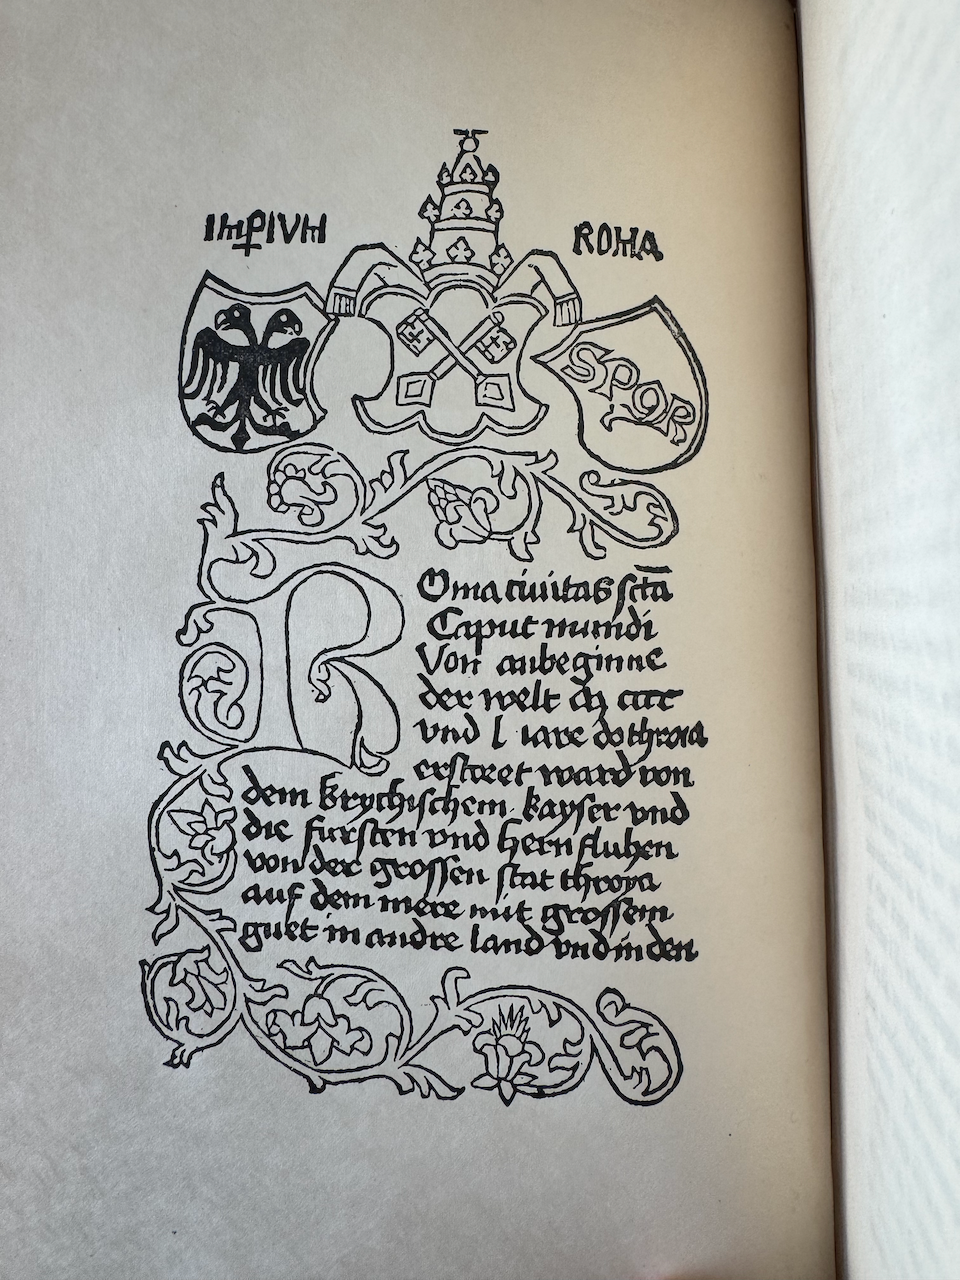 IMꝑIVM
ROMA
SPQR
ROma civitas sctā
Caput mundi
Von anbeginne
der welt
vnd l iare do throia
erstoret ward von
dem krychischem kayser vnd
die fursten vnd hern fluhen
von der grossen stat throya
auf dem mere mit grossem
guet in andre land vnd in den